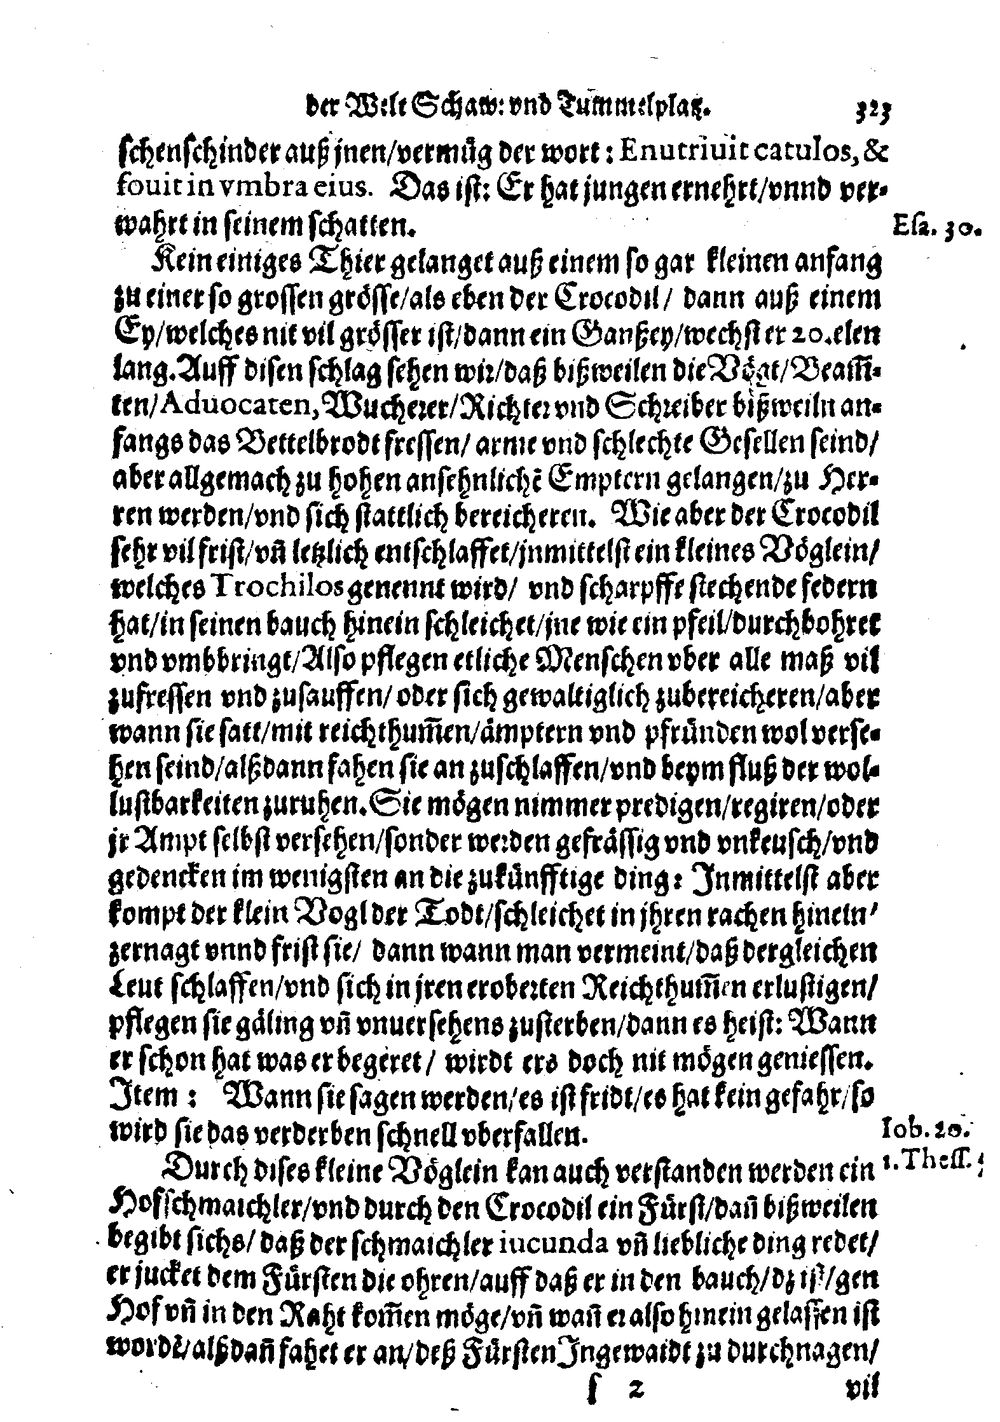 der Welt Schaw: vnd Tummelplatz. 323
schenschinder auß jnen/vermüg der wort: Enutriuit catulos, &
fouit in vmbra eius. Das ist: Er hat jungen ernehrt/vnnd ver-
wahrt in seinem schatten.
Esa. 30.
Kein einiges Thier gelanget auß einem so gar kleinen anfang
zu einer so grossen grösse/als eben der Crocodil/ dann auß einem
Ey/welches nit vil grösser ist/dann ein Ganßey/wechst er 20.elen
lang. Auff disen schlag sehen wir/daß bißweilen die Vögt/Beam̃-
ten/Aduocaten, Wucherer/Richter vnd Schreiber bißweiln an-
fangs das Bettelbrodt fressen/ arme vnd schlechte Gesellen seind/
aber allgemach zu hohen ansehnlichẽ Emptern gelangen/zu Her-
ren werden/vnd sich stattlich bereicheren. Wie aber der Crocodil
sehr vil frist/vñ letzlich entschlaffet/jnmittelst ein kleines Vöglein/
welches Trochilos genennt wird/ vnd scharpffe stechende federn
hat/in seinen bauch hinein schleichet/jne wie ein pfeil/durchbohret
vnd vmbbringt/Also pflegen etliche Menschen vber alle maß vil
zufressen vnd zusauffen/ oder sich gewaltiglich zubereicheren/aber
wann sie satt/mit reichthum̃en/ämptern vnd pfründen wol verse-
hen seind/alßdann fahen sie an zuschlaffen/vnd beym fluß der wol-
lustbarkeiten zuruhen. Sie mögen nimmer predigen/regiren/oder
jr Ampt selbst versehen/sonder werden gefrässig vnd vnkeusch/vnd
gedencken im wenigsten an die zukünfftige ding: Inmittelst aber
kompt der klein Vogl der Todt/schleichet in jhren rachen hinein/
zernagt vnnd frist sie/ dann wann man vermeint/daß dergleichen
Leut schlaffen/vnd sich in jren eroberten Reichthum̃en erlustigen/
pflegen sie gäling vñ vnuersehens zusterben/dann es heist: Wann
er schon hat was er begeret/ wirdt ers doch nit mögen geniessen.
Item: Wann sie sagen werden/es ist fridt/es hat kein gefahr/so
wird sie das verderben schnell vberfallen.
Iob. 20.
1. Thess. 5
Durch dises kleine Vöglein kan auch verstanden werden ein
Hofschmaichler/vnd durch den Crocodil ein Fürst/dañ bißweilen
begibt sichs/ daß der schmaichler iucunda vñ liebliche ding redet/
er jucket dem Fürsten die ohren/auff daß er in den bauch/dz ist/gen
Hof vñ in den Raht kom̃en möge/vñ wañ er also hinein gelassen ist
wordẽ/alßdañ fahet er an/deß Fürsten Ingewaidt zu durchnagen/
s 2 vil